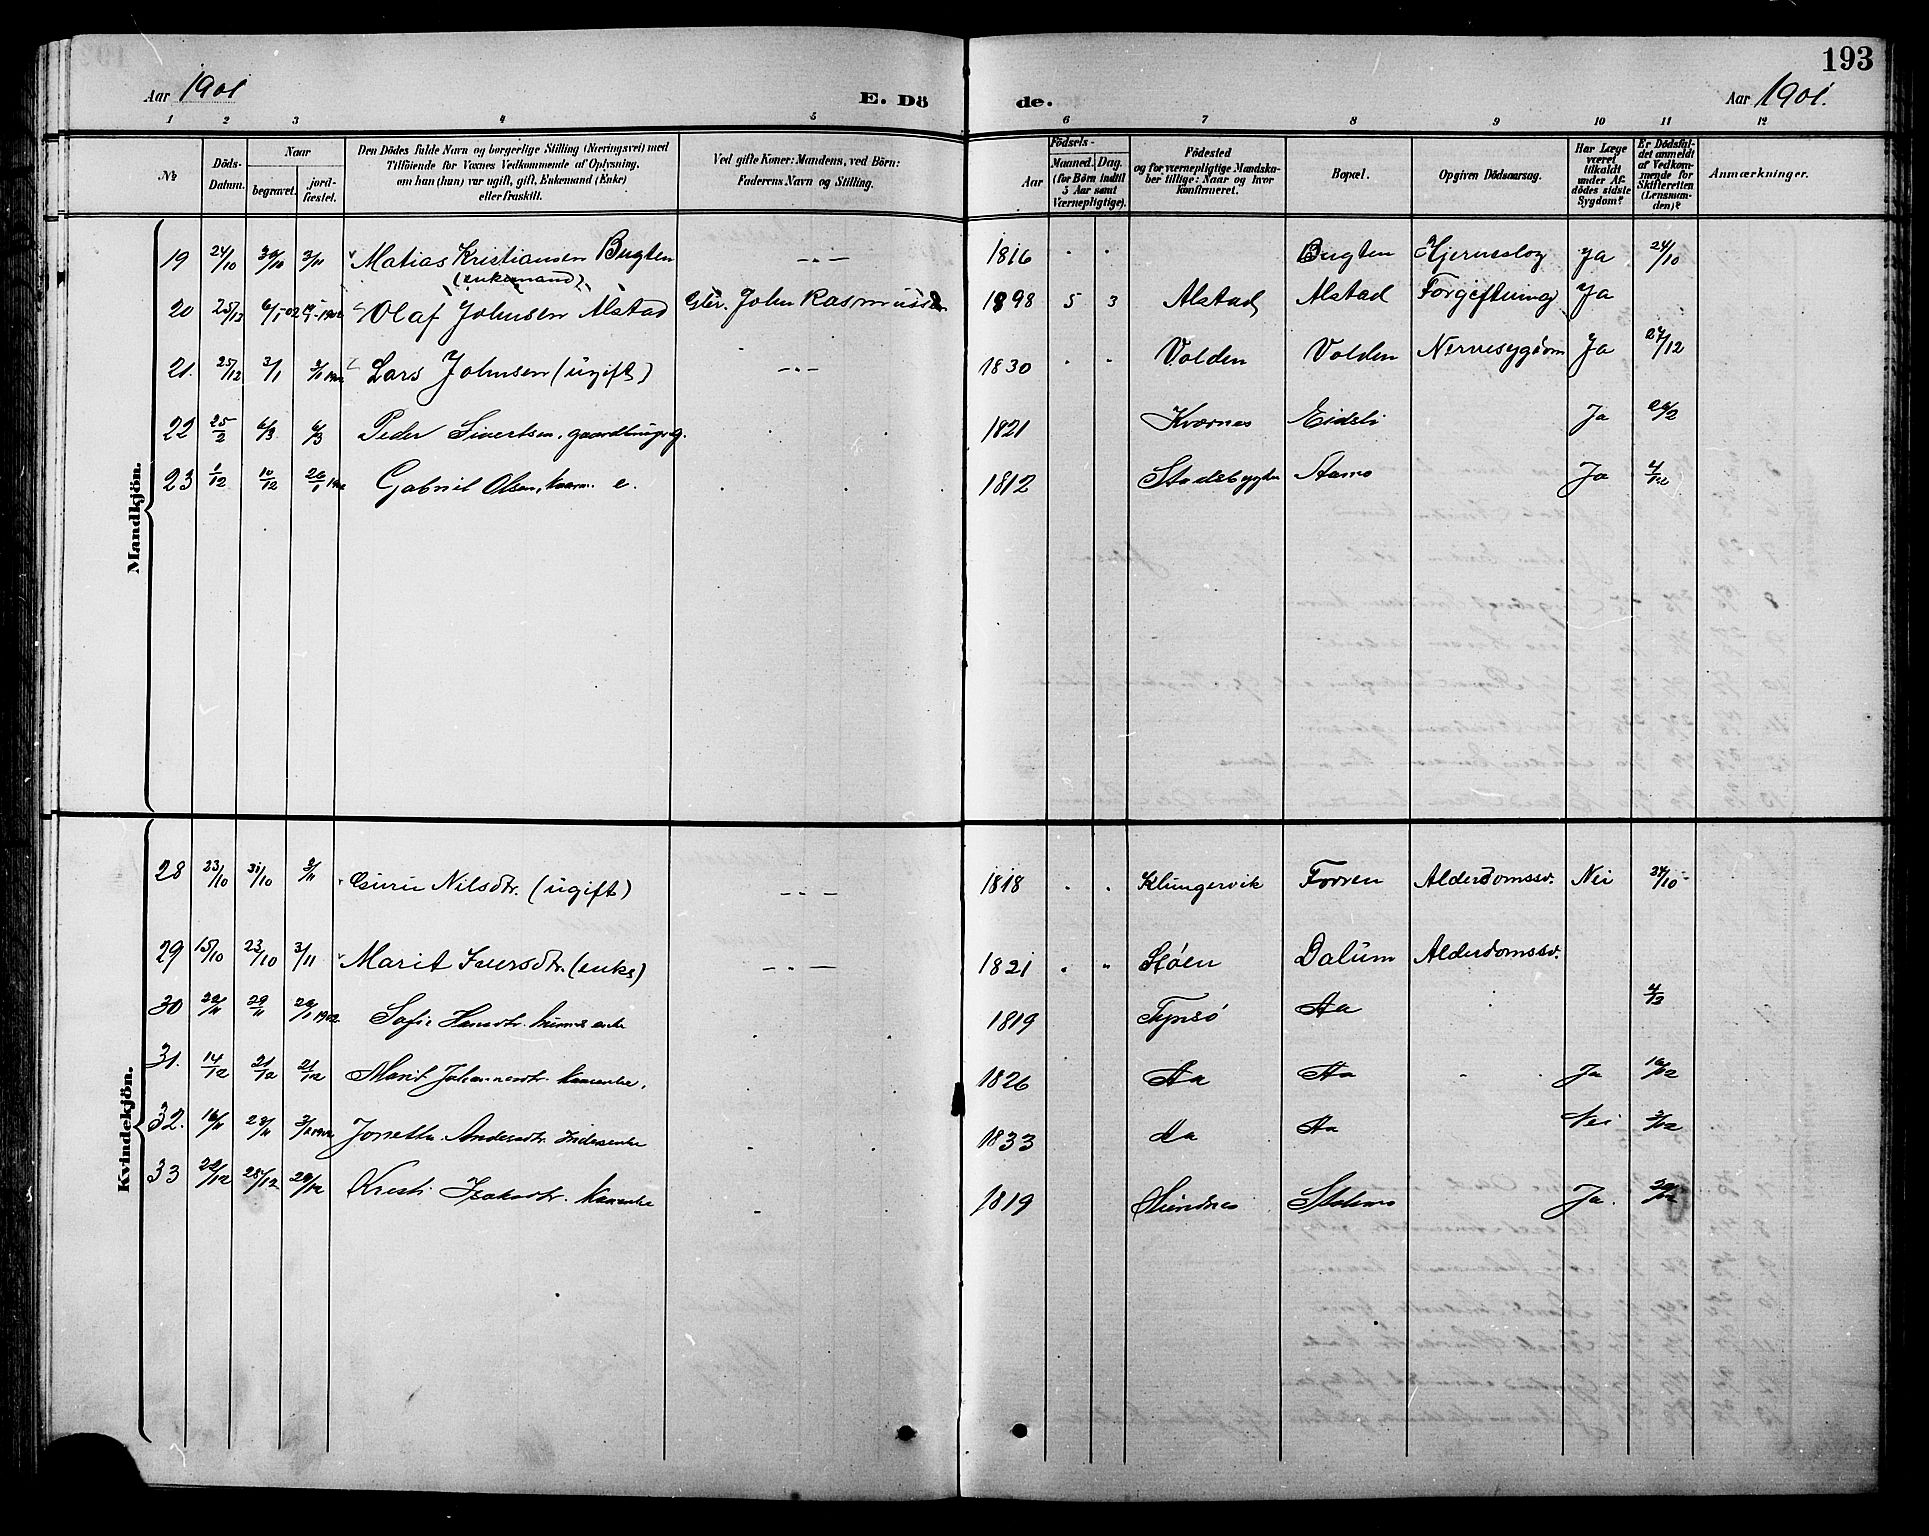 193
Aar 1901 E. Dö de. Aar 1901.
1 2 3 4 5 6 7 8 9 10 11 12
No
Döds-Datum.
Naar
begravet.
jord-fæstet.
Den Dödes fulde Navn og borgerlige Stilling (Næringsvei) med
Tilföiende for Voxnes Vedkommende af Oplysning,
om han (hun) var ugift, gift, Enkemand (Enke)
eller fraskilt.
Ved gifte Koner: Mandens, ved Börn:
Faderens Navn og Stilling.
Födsels-
Aar
Maaned.
Dag.
(for Börn indtil
5 Aar samt
Værnepligtige).
Födested
og for værnepligtige Mandska-
ber tillige: Naar og hvor
konfirmeret.
Bopæl.
Opgiven Dödsaarsag.
Har Læge
været
tilkaldt
under Af-
dödes sidste
Sygdom?
Er Dödsfal-
det anmeldt
af Vedkom-
mende for
Skifteretten
(Lensman-
den)?
Anmærkninger.
Mandkjön.
19 24/10 30/10 3/11 Matias Kristiansen Bugten - " - 1816 " " Bugten Hjerneslag Ja 24/10
(enkemand)
20 25/12 6/1-02 Olaf Johnsen Alstad Gbr. John Rasmussen 1898 5 3 Alstad Alstad Forgiftning Ja
21. 25/12 3/1 3/1 1902 Lars Johnsen (ugift) - " - 1830 " " Volden Volden Nervesygdom Ja 27/12
22 25/2 6/3 6/3 Peder Sivertsen, gaardbruger g. 1821 Kværnes Eidsli Ja 26/2
23 1/12 10/12 26/1 1902 Gabriel Olsen, kaarm. e. 1812 Stadsbygden Aamo Ja 4/12
Kvindekjön.
28 23/10 31/10 3/11 Guru Nilsdtr. (ugift) - " - 1818 " " Klungervik Forren Alderdomssv. Nei 24/10
29 15/10 23/10 3/11 Marit Iversdtr (enke) - " - 1821 " " Støen Dalum Alderdomssv.
30 22/11 29/11 1902 Sofie Hansdtr. enke 1819 Tynsö Aa 4/12
31. 14/12 21/12 21/12 Marit Johannesdtr. kaarenke. 1826 Aa Aa Ja 16/12
32. 16/11 23/11 3/1 1902 Jonetta Andersdtr. Inderenke 1833 Aa Aa Nei 3/12
33 22/12 28/12 29/12 Kresti Izaksdtr. kaarenke 1819 Sundnes Stolmo Ja.